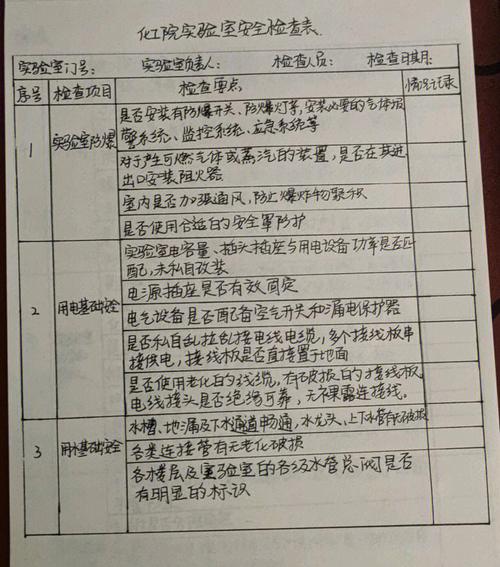 化工院实验室安全检查表
实验室门号: 实验室负责人: 检查人员: 检查日期:
序号 检查项目 检查要点 情况记录
1 实验室防爆
是否安装有防爆开关、防爆灯等,安装必要的气体报
警系统、监控系统、应急系统等
对于产生可燃气体或蒸汽的装置,是否在其进
出口安装阻火器
室内是否加强通风,防止爆炸物聚积
是否使用合适的安全罩防护
2 用电基础安全
实验室电容量、插头插座与用电设备功率是否匹
配,未私自改装
电源插座是否有效固定
电气设备是否配备空气开关和漏电保护器
是否私自乱拉乱接电线电缆,多个接线板串
接供电,接线板是否直接置于地面
是否使用老化的线缆,有破损的接线板,
电线接头是否绝缘可靠,无裸露连接线。
3 用水基础安全
水槽、地漏及下水通道畅通,水龙头、上下水管有无破损
各类连接管有无老化破损
各楼层及实验室的各级水管总阀是否
有明显的标识